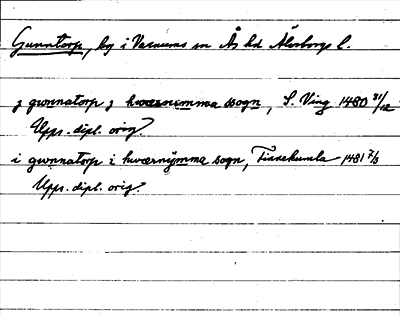 Gunntorp, by i Varnums sn Ås hd Älvsborgs l.
j gwnnatorp j hwærnomma ssogn, S. Ving 1480 31/12
Upps. dipl. orig?
i gwnnatorp i hwærnymma sogn, Tissekumla 1481 7/3
Upps. dipl. orig?